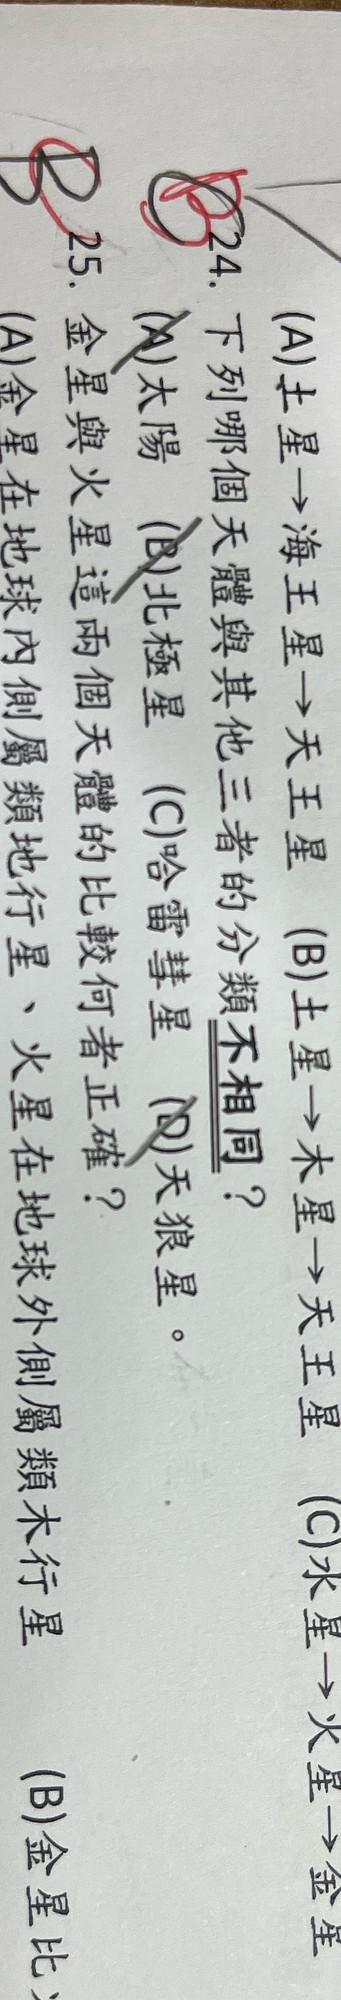 (A)土星→海王星→天王星 (B)土星→木星→天王星 (C)水星→火星→金星
24. 下列哪個天體與其他三者的分類不相同？
(A)太陽 (B)北極星 (C)哈雷彗星 (D)天狼星。
B 25. 金星與火星這兩個天體的比較何者正確？
(A)金星在地球內側屬類地行星、火星在地球外側屬類木行星 (B)金星比